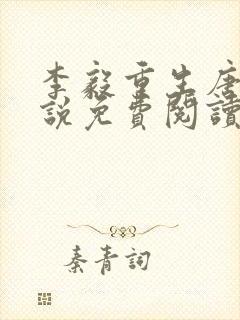 李毅重生唐
說免費閱讀
秦青詞